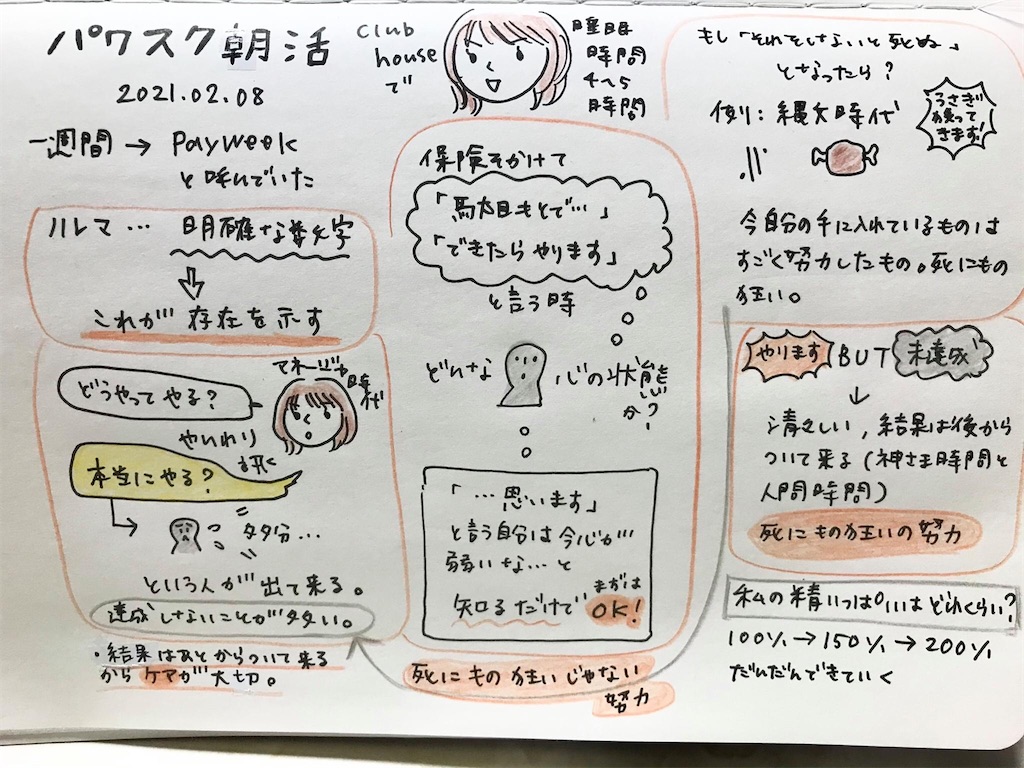 パワスク朝活
2021.02.08
club
house
で
睡眠
時間
4〜5
時間
一週間 → Payweek
と呼んでいた
ハレマ… 明確な数字
これが 存在を示す
マネージャ
時代
どうやってやる?
やんわり
訊く
本当にやる?
多分…
という人が出て来る。
達成しないことが多い。
・結果はあとからついて来る
から ケアが大切。
保険をかけて
「馬太目もとで…」
「できたらやります」
と言う時
どんな 心の状態
か?
「…思います」
と言う自分は今心が
弱いな…と
知るだけで まずは
OK!
死にもの狂いじゃない
努力
もし「それをしないと死ぬ」
となったら?
例り: 縄文時代
うさぎ
狩って
きます!
今自分の手に入れているものは
すごく努力したもの。死にもの
狂い。
やります BUT 未達成
↓
清々しい,結果は後から
ついて来る(神さま時間と
人間時間)
死にもの狂いの努力
私の精いっぱいはどれくらい?
100% → 150% → 200%
だんだんできていく